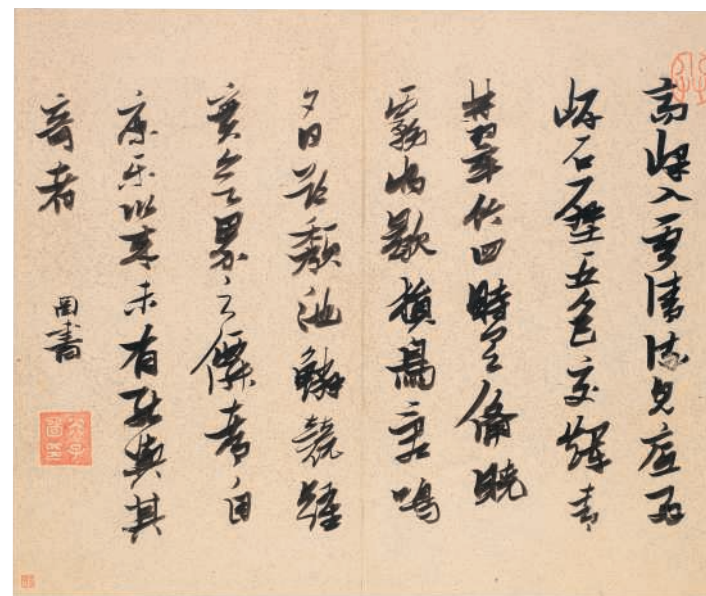 高峰入雲清流見底兩
岸石壁五色交輝青
林翠竹四時具備曉
霧將歇猿鳥亂鳴
夕日欲頹池鱗競躍
實欲界之僊都自
康樂以來未有能與其
奇者
書